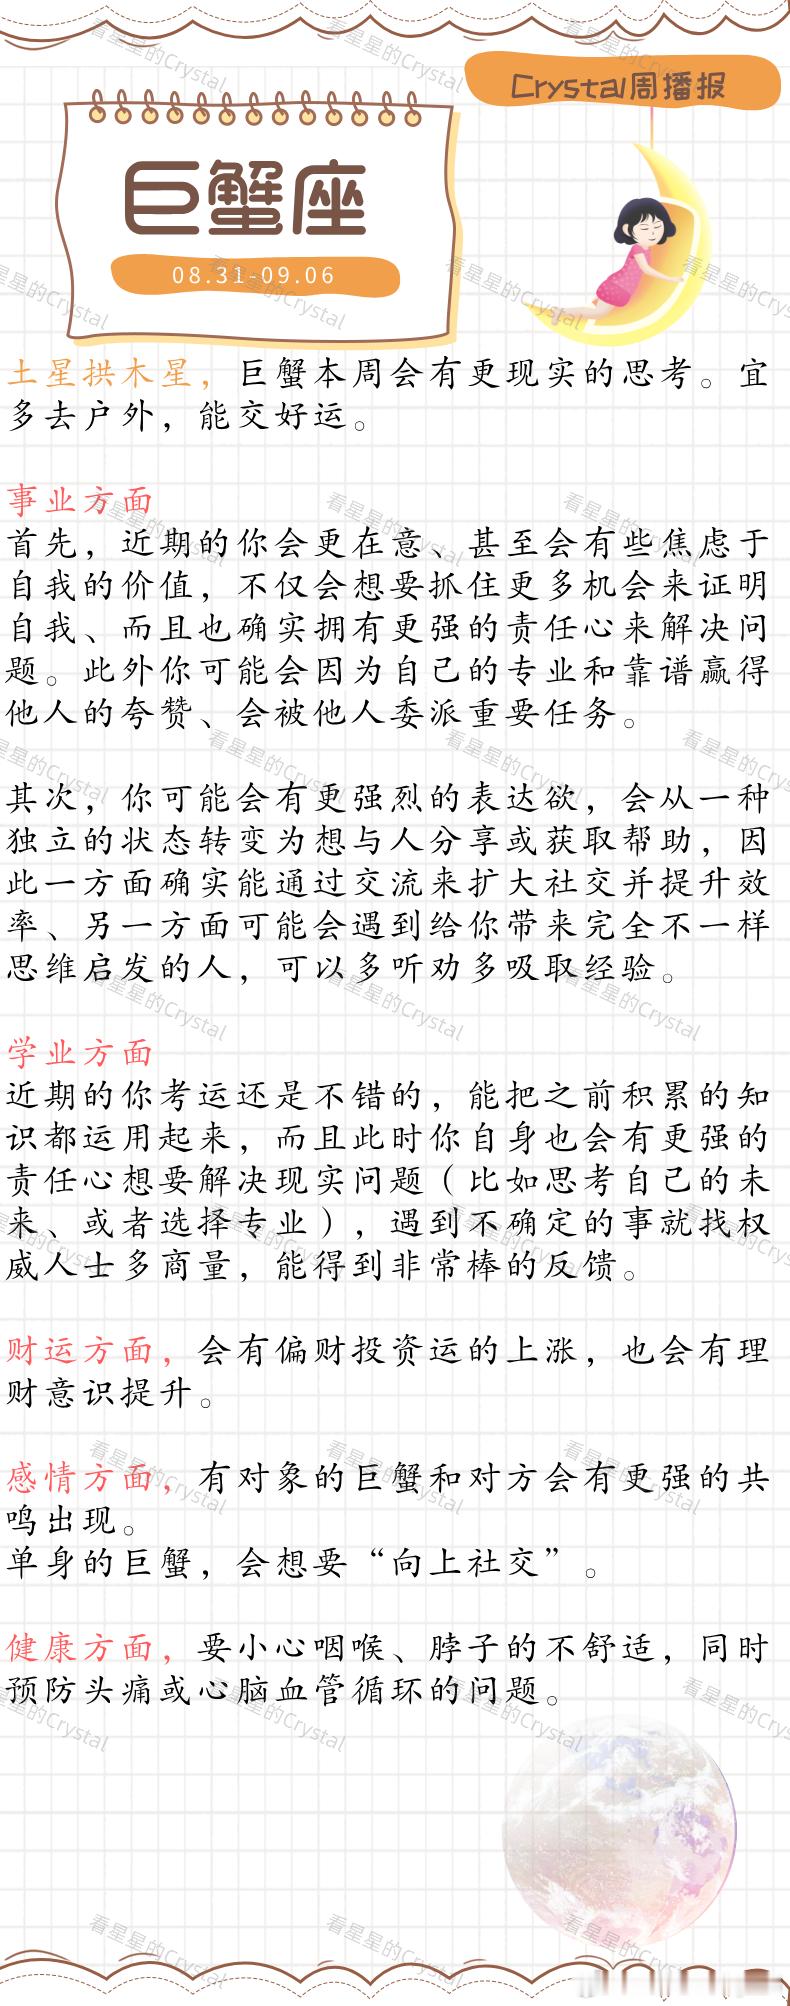 Crystal周播报
巨蟹座
08.31-09.06
土星拱木星，巨蟹本周会有更现实的思考。宜
多去户外，能交好运。
事业方面
首先，近期的你会更在意、甚至会有些焦虑于
自我的价值，不仅会想要抓住更多机会来证明
自我、而且也确实拥有更强的责任心来解决问
题。此外你可能会因为自己的专业和靠谱赢得
他人的夸赞、会被他人委派重要任务。
其次，你可能会有更强烈的表达欲，会从一种
独立的状态转变为想与人分享或获取帮助，因
此一方面确实能通过交流来扩大社交并提升效
率、另一方面可能会遇到给你带来完全不一样
思维启发的人，可以多听劝多吸取经验。
学业方面
近期的你考运还是不错的，能把之前积累的知
识都运用起来，而且此时你自身也会有更强的
责任心想要解决现实问题（比如思考自己的未
来、或者选择专业），遇到不确定的事就找权
威人士多商量，能得到非常棒的反馈。
财运方面，会有偏财投资运的上涨，也会有理
财意识提升。
感情方面，有对象的巨蟹和对方会有更强的共
鸣出现。
单身的巨蟹，会想要“向上社交”。
健康方面，要小心咽喉、脖子的不舒适，同时
预防头痛或心脑血管循环的问题。
看星星的Crystal